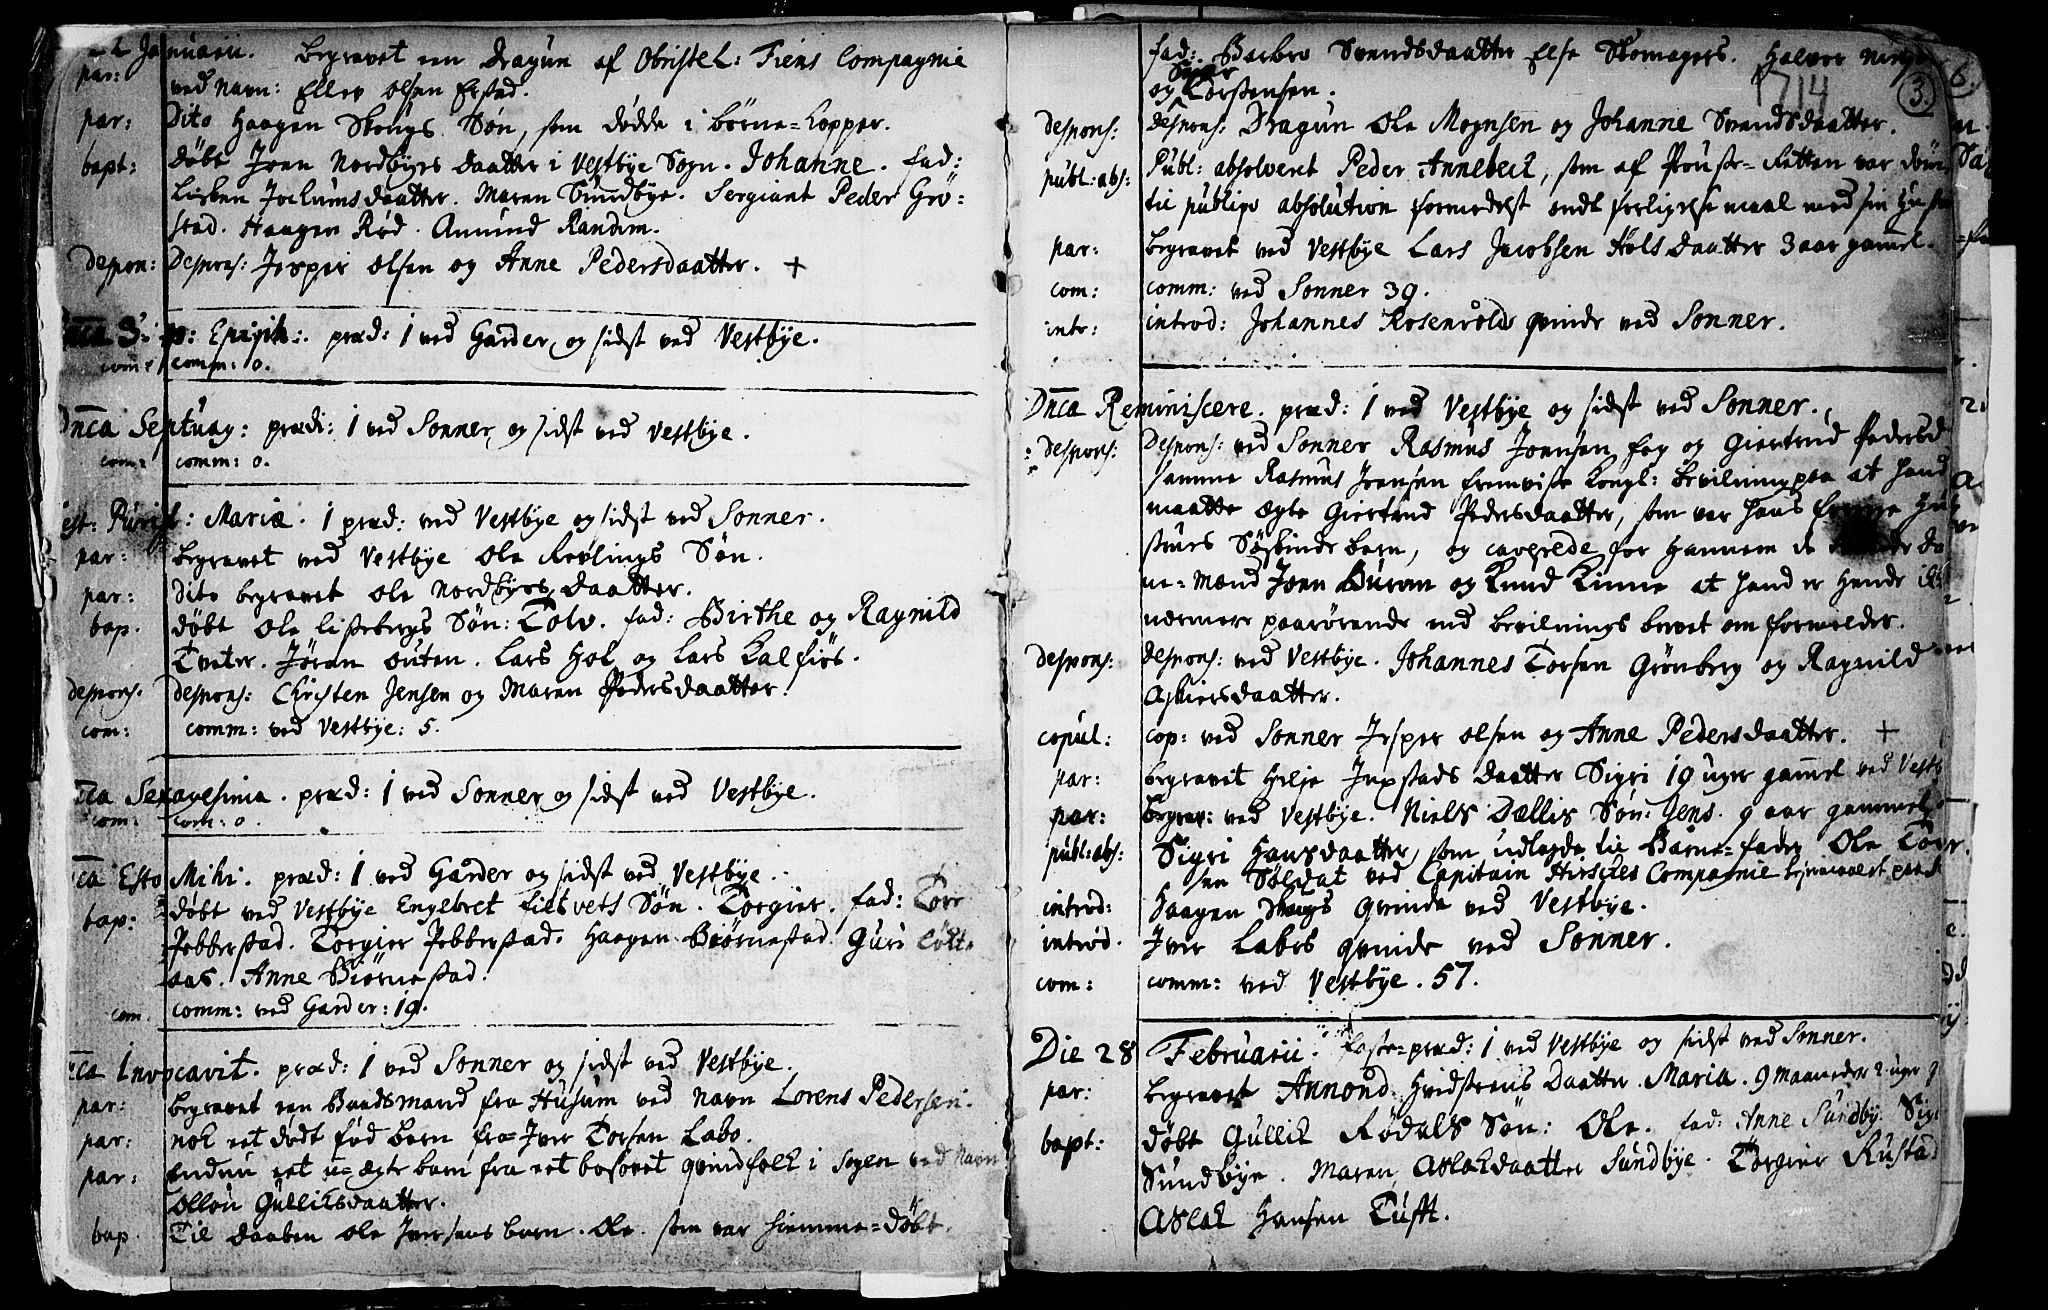 Januarii. begravet een Dragun af Obristel: Fiens Compagnie
par: ved navn: Ellev olsen Erstad.
par: Dito Haagen Skougs Søn, som døde i børne=kopper.
bapt: døbt Joen Nordbyes daatter i Vestbye Sogn. Johanne. fad:
Lisken Jochumsdaatter. Maren Sundbye. Sergiant Peder Grö=
stad. Haagen Rød. Amund Randem.
despon: Despons: Jesper olsen og Anne Pedersdaatter. +
Dnca 3. p: Epiph: præd: 1 ved Garder og sidst ved Vestbÿe.
com: comm: 0.
Dnca Septuag: prædi: 1 ved Sonner og sidst ved Vestbÿe.
com: comm: 0.
Fest: Purif: Mariæ. 1 præd: ved Vestbÿe og sidst ved Sonner.
par: begravet ved Vestbÿe Ole Revlings Søn.
par: dito begravet Ole Nordbyes daatter.
bap. døbt Ole listebergs Søn: Tolv. fad: Birthe og Ragnild
Tveter. Jöran outen. Lars Hol og Lars Kalsiös.
despons. despons: Christen Jensen og Maren Pedersdaatter.
com: comm: ved Vestbÿe: 5.
Dnca Sexagesima. præd: 1 ved Sonner og sidst ved Vestbÿe.
com: com: 0.
Dnca Esto Mihi. præd: 1 ved Garder og sidst ved Vestbÿe.
bap: døbt ved Vestbÿe Engebret Lietvets Søn. Torgier. fad: Torr
Pebberstad. Torgier Pebberstad. Haagen Biörnestad. Guri Tött=
aas. Anne Biørnestad.
com. comm: ved Garder: 19.
Dnca Invocavit. præd: 1 ved Sonner og sidst ved Vestbÿe.
par: begravet een Baadsmand fra Husum ved navn Lorens Pedersen.
par: nok et dødt fød barn fra Iver Torsen Labo.
par: endnu et u=ægte barn fra et besovet qvindfolk i Sogen ved Navn
Ollou Gullichsdaatter.
bap. Til daaben Ole Iversens barn. Ole. som var hiemme=døbt.
fad: Barbro Svendsdaatter Else Skomagers. Halvor
og Torstensen.
1714
3.
despons: despons: Dragun Ole Mognsen og Johanne Svendsdaatter.
publ:abs: Publ: absolveret Peder Annebeck, som af Prouste=Retten var döm
til publiqve absolution formedelst ondt forligelsemaal med sin Hustr
par: begravet ved Vestbÿe Lars Jacobsen Höls daatter 3 aar gammel.
com: comm: ved Sonner 39.
intr: introd: Johannes Rosenvolds qvinde ved Sonner.
Dnca Reminiscere. præd: 1 ved Vestbÿe og sidst ved Sonner.
despons: Despons: ved Sonner Rasmus Joensen Foy og Giertrud Pedersd
samme Rasmus Joensen fremviste Kongl: bevilning paa at hand
maatte ægte Giertrud Pedersdaatter, som var hans forrige Hu
strues Söskinde barn, og caverede for hannem de Da
ne=Mænd Joen Burom og Knud Kinne at hand er hende ikk
nermere paarörende end bevilnings brevet om formelder.
despons: despons: ved Vestbÿe. Johannes Torsen Grönberg og Ragnild
Askiersdaatter.
copul: cop: ved Sonner Jesper olsen og Anne Pedersdaatter. +
par: begravet Helje Jupstads daatter Sigri 19 uger gamel ved Vestb
par: begrav: ved Vestbÿe. Niels Dællis Søn: Jens. 9 aar gammel.
publ:abs: Sigri Hansdaatter, som udlagde til Barne=fader Ole Tor
sen Soldat ved Capitain Hirsches Compagnie
introd: Haagen Skougs qvinde ved Vestbye.
introd. Iver Labes qvinde ved Sonner.
com: comm: ved Vestbÿe. 57.
Die 28 Februarii. faste=præd: 1 ved Vestbye og sidst ved Sonner.
par: begravet Annond Hvidstens Daatter. Maria. 9 maaneder 2 uger
bapt: døbt Gullik Rødals Søn: Ole. fad: Anne Sundbÿ. Sig
Sundbÿe. Maren Aslakdaatter Sundbÿe. Torgier Rusta
Aslak Hansen Tufft.